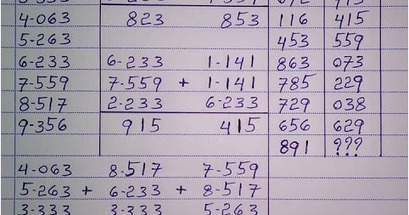 4-063 823 853 116 415
5-263 453 559
6-233 6-233 1-141 863 073
7-559 7-559 + 1-141 785 229
8-517 2-233 6-233 729 038
9-356 915 415 656 629
891 ???
4-063 8-517 7-559
5-263 + 6-233 + 8-517
3-333 3-333 5-263